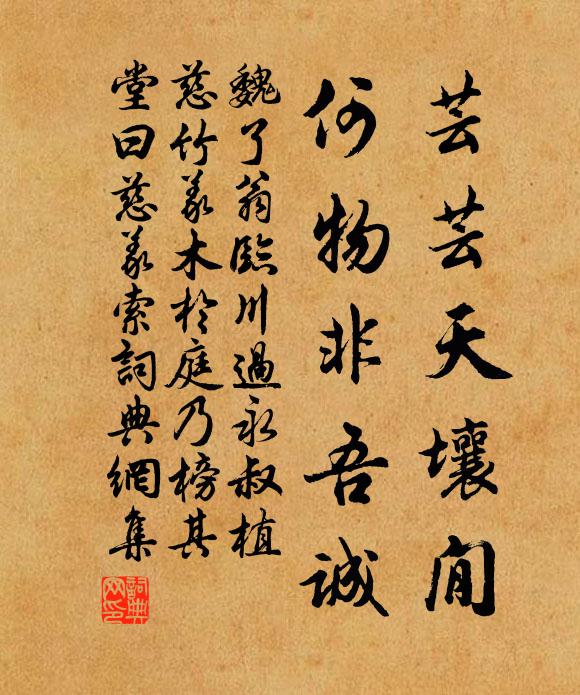 芸芸天壤間
何物非吾誠
魏了翁臨川過永叔植
慈竹義木於庭乃榜其
堂曰慈義索詞典網集
詞典網印